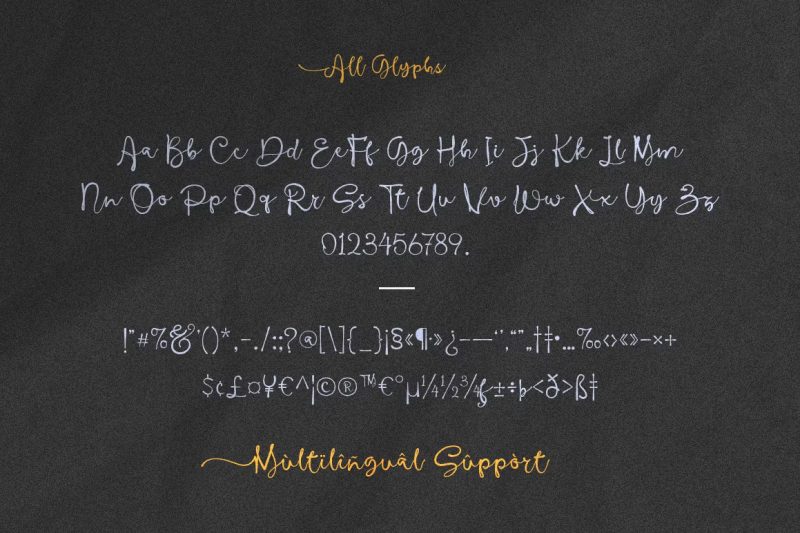 All Glyphs
Aa Bb Cc Dd Ee Ff Gg Hh Ii Jj Kk Ll Mm
Nn Oo Pp Qq Rr Ss Tt Uu Vv Ww Xx Yy Zz
0123456789.
!"#%&'()*,-./:;?@[\]{_}¡§«¶·»¿–—‘’‚“”„†‡•…‰‹›«»−×+
$¢£¤¥€^¦©®™€°µ¼½¾ ±÷þ<ð>ß‡
Mùltïlîñguâl Sûppòrt